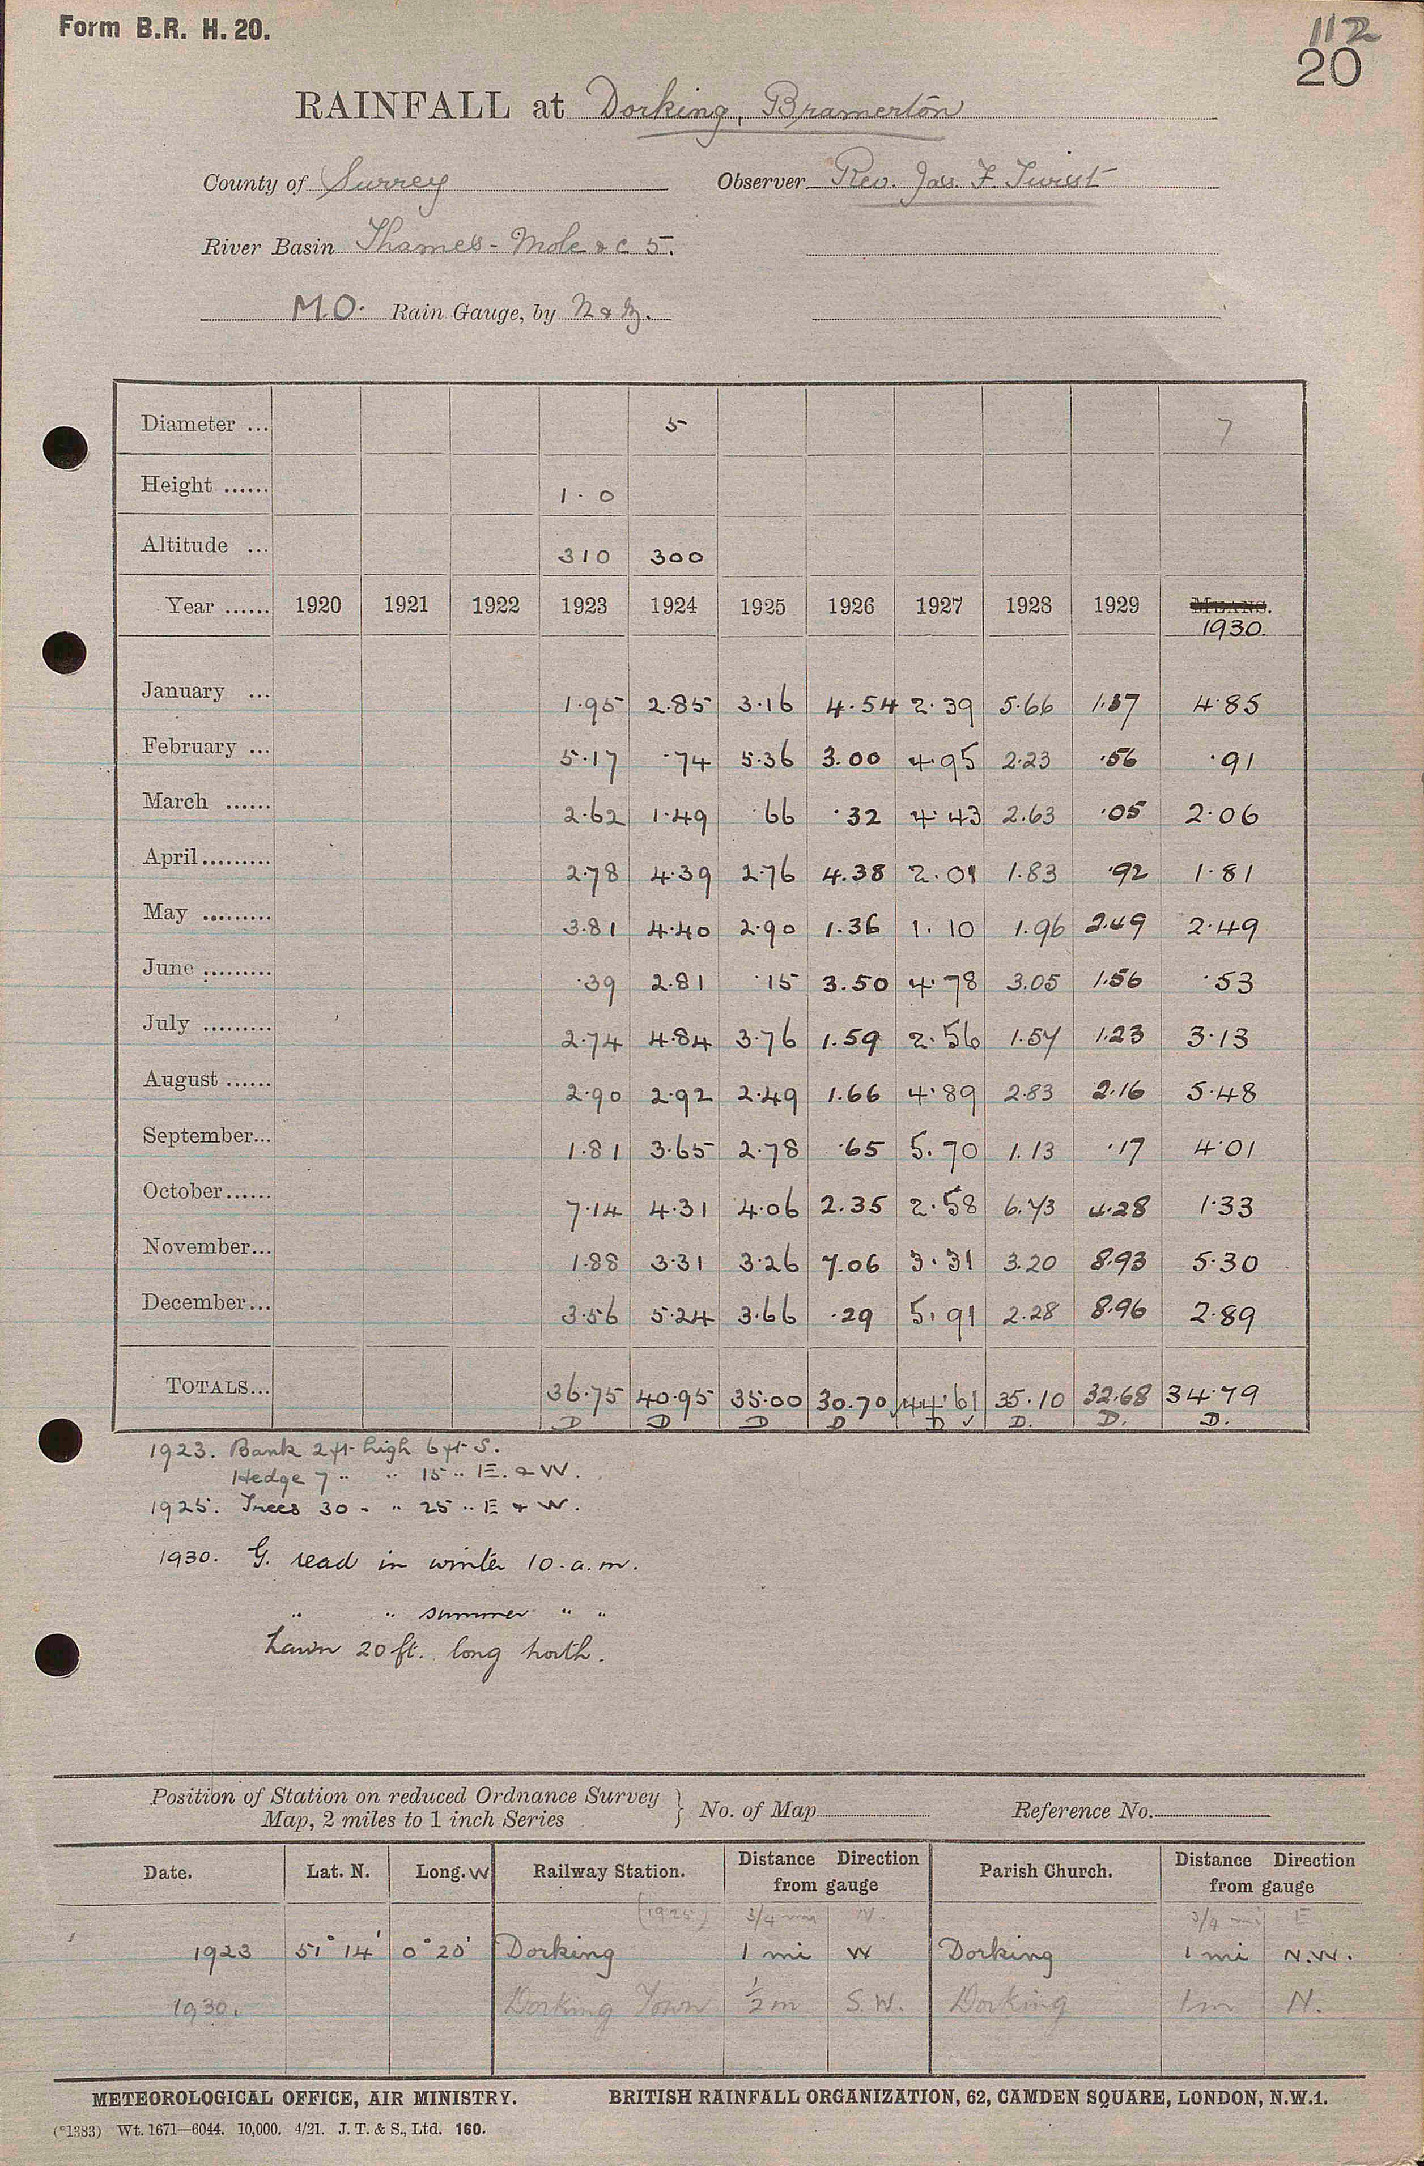 Form B.R. H. 20.
112
20
RAINFALL at Dorking, Bramerton
County of Surrey Observer Rev. Jas. F. Twist
River Basin Thames - Mole &c 5.
M.O. Rain Gauge, by N & Z.
Diameter ... 5 7
Height ...... 1. 0
Altitude ... 310 300
Year ...... 1920 1921 1922 1923 1924 1925 1926 1927 1928 1929 MEANS.
1930.
January ... 1.95 2.85 3.16 4.54 2.39 5.66 1.37 4.85
February ... 5.17 .74 5.36 3.00 4.95 2.23 .56 .91
March ...... 2.62 1.49 .66 .32 4.43 2.63 .05 2.06
April ......... 2.78 4.39 2.76 4.38 2.01 1.83 .92 1.81
May ......... 3.81 4.40 2.90 1.36 1.10 1.96 2.49 2.49
June ......... .39 2.81 .15 3.50 4.78 3.05 1.56 .53
July ......... 2.74 4.84 3.76 1.59 2.56 1.57 1.23 3.13
August ...... 2.90 2.92 2.49 1.66 4.89 2.83 2.16 5.48
September... 1.81 3.65 2.78 .65 5.70 1.13 .17 4.01
October...... 7.14 4.31 4.06 2.35 2.58 6.73 4.28 1.33
November... 1.88 3.31 3.26 7.06 3.31 3.20 8.93 5.30
December... 3.56 5.24 3.66 .29 5.91 2.28 8.96 2.89
TOTALS... 36.75 40.95 35.00 30.70 44.61 35.10 32.68 34.79
D D D D D ✓ D. D. D.
1923. Bank 2 ft high 6 ft S.
Hedge 7 " " 15 " E. & W.
1925. Trees 30 " " 25 " E & W.
1930. G. read in winter 10 a.m.
" " summer " "
Lawn 20 ft. long north.
Position of Station on reduced Ordnance Survey
Map, 2 miles to 1 inch Series } No. of Map Reference No.
Date. Lat. N. Long. W Railway Station. Distance Direction from gauge Parish Church. Distance Direction from gauge
(1925) 3/4 mi N. 3/4 mi E
1923 51° 14' 0° 20' Dorking 1 mi W Dorking 1 mi N.W.
1930. Dorking Town 1/2 m S.W. Dorking 1m N.
METEOROLOGICAL OFFICE, AIR MINISTRY. BRITISH RAINFALL ORGANIZATION, 62, CAMDEN SQUARE, LONDON, N.W.1.
(*1383) Wt. 1671—6044. 10,000. 4/21. J. T. & S., Ltd. 160.